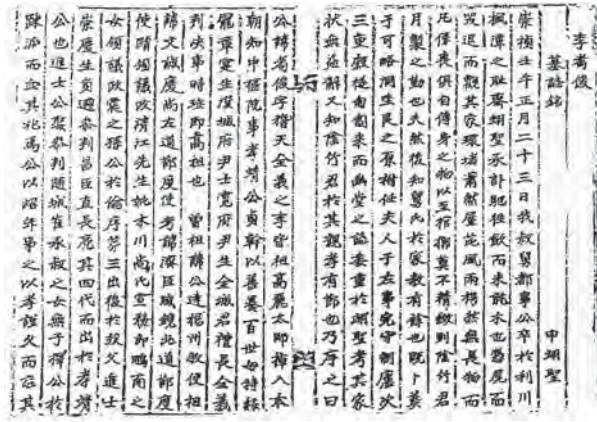 李耆俊
墓誌銘 申翊聖
崇禎壬午正月二十三日我叔舅都事公卒於利川
楓潭之耻齋翊聖承訃匍徃歛而来能本也
哭退而觀其家環堵蕭然屋花風雨稱於無長物而
凡俸喪俱自傳身之物以至棺槨莫不精緻則陰竹君
月製之勤也夫然後知舅氏於家教有餘也既卜葬
于可略洞生艮之原柎任夫人于左事完守制廬次
三重觀徒匍匐来而幽堂之誌委重於翊聖考其家
狀無與辭又知陰竹君於其親孝有節也乃序之曰
公諱耆俊字 天全義之李皆祖高麗太師棹入本
朝知中樞院事孝靖公貞幹以善養百世母特
寵章寔生漢城府尹士寬府尹生全城君禮長全義
判決事時珎即高祖也 曾祖諱公達根州敎使祖
諱文誠慶尚左道節度使考諱濟臣咸鏡北道節度
使贈領議政清江先生妣木川尚氏宣務郎鵬南之
女領議政震之孫公於倫序第三出後於叔父進士
崇慶生員逈參判昌臣直長 其四代而出於孝靖
公也進士公娶參判隨城崔承叔之女無子擇公於
陳 而血其祀焉公以紹年事之以孝謹久而忘其